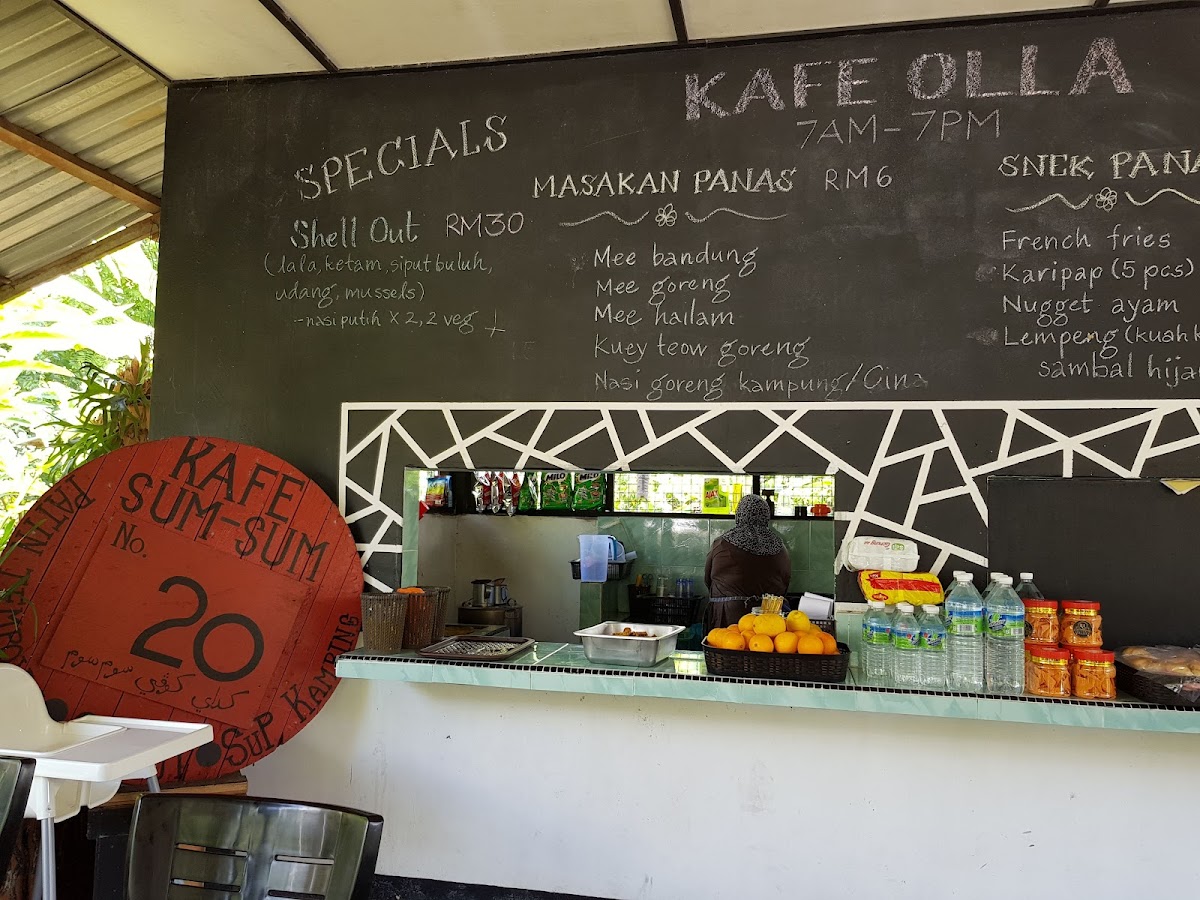 KAFE OLLA
7AM-7PM
SPECIALS
Shell Out RM30
(lala, ketam, siput buluh,
udang, mussels)
--nasi putih x 2, 2 veg +
MASAKAN PANAS RM6
Mee bandung
Mee goreng
Mee hailam
Kuey teow goreng
Nasi goreng kampung/Cina
SNEK PANA
French fries
Karipap (5 pcs)
Nugget ayam
Lempeng (kuah k
sambal hija
KAFE
SUM-SUM
No.
20
PATIN
SUP KAMPUNG
MILO
MILO